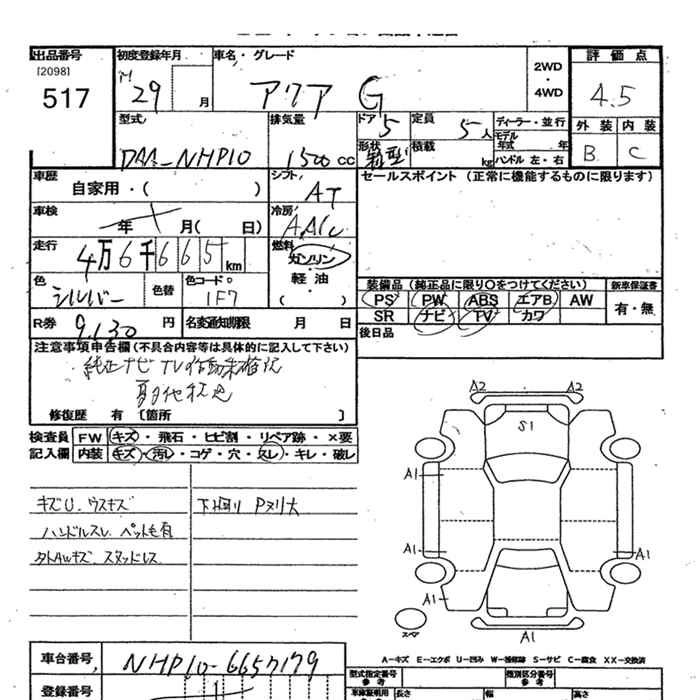 出品番号
[2098]
517
初度登録年月
H 29 月
車名・グレード
アクア G
2WD
・
4WD
評価点
4.5
外装 内装
B C
型式
DAA-NHP10
排気量
1500 CC
ドア 5
形状
箱型
定員 5人
積載 kg
ディーラー・並行
モデル
年式 年
ハンドル 左・右
車歴
自家用・( )
シフト
AT
セールスポイント (正常に機能するものに限ります)
車検
年 月( 日)
冷房
AAC
走行
4万6千665 km
燃料
ガソリン
・
軽油
( )
色
シルバー
色替
色コード
1F7
装備品 (純正品に限り○をつけてください)
新車保証書
PS PW ABS エアB AW
SR ナビ TV カワ
有・無
R券 9,130 円
名変通知期限 月 日
後日品
注意事項申告欄 (不具合内容等は具体的に記入して下さい)
純正ナビ TV作動未確認
修復歴 有 〔箇所 〕
検査員
記入欄
FW キズ・飛石・ヒビ割・リペア跡・×要
内装 キズ・汚レ・コゲ・穴・スレ・キレ・破レ
キズU. ウスキズ
ハンドルスレ ペット毛有
タイヤAWキズ. スタッドレス
下回り Pヌリ大
A2 A2
S1
A1
A1 A1
A1
A1
スペア
A-キズ E-エクボ U-凹み W-補修跡 S-サビ C-腐食 XX-交換済
車台番号
NHP10-6657179
登録番号
型式指定番号
参考
類別区分番号
参考
車庫証明用
長さ 幅 高さ